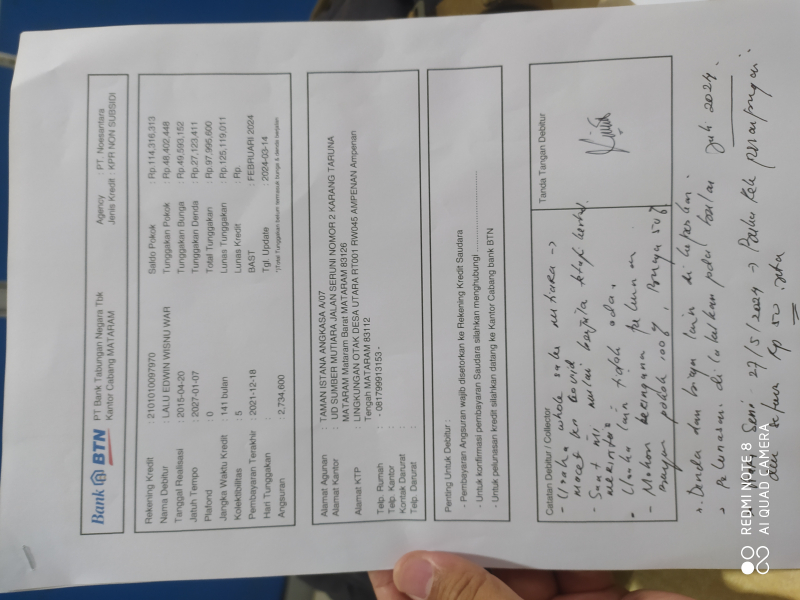 Bank BTN
PT Bank Tabungan Negara Tbk
Kantor Cabang MATARAM
Agency : PT. Noesantara
Jenis Kredit : KPR NON SUBSIDI
Rekening Kredit : 2101010097970
Nama Debitur : LALU EDWIN WISNU WAR
Tanggal Realisasi : 2015-04-20
Jatuh Tempo : 2027-01-07
Plafond : 0
Jangka Waktu Kredit : 141 bulan
Kolektibilitas : 5
Pembayaran Terakhir : 2021-12-18
Hari Tunggakan :
Angsuran : 2,734,600
Saldo Pokok : Rp.114,316,313
Tunggakan Pokok : Rp.48,402,448
Tunggakan Bunga : Rp.49,593,152
Tunggakan Denda : Rp.27,123,411
Total Tunggakan : Rp.97,995,600
Lunas Tunggakan : Rp.125,119,011
Lunas Kredit : Rp.
BAST : FEBRUARI 2024
Tgl. Update : 2024-03-14
*)Total Tunggakan belum termasuk bunga & denda berjalan
Alamat Agunan : TAMAN ISTANA ANGKASA A/07
Alamat Kantor : UD SUMBER MUTIARA JALAN SERUNI NOMOR 2 KARANG TARUNA
MATARAM Mataram Barat MATARAM 83126
Alamat KTP : LINGKUNGAN OTAK DESA UTARA RT001 RW045 AMPENAN Ampenan
Tengah MATARAM 83112
Telp. Rumah : - 081799913153 -
Telp. Kantor :
Kontak Darurat :
Telp. Darurat :
Penting Untuk Debitur :
- Pembayaran Angsuran wajib disetorkan ke Rekening Kredit Saudara
- Untuk konfirmasi pembayaran Saudara silahkan menghubungi ..............................
- Untuk pelunasan kredit silahkan datang ke Kantor Cabang bank BTN
Catatan Debitur / Collector
Tanda Tangan Debitur
- Usaha whole sale mutiara ->
macet krn Covid
- Saat ini mulai
- Usaha lain tidak ada.
- Mohon keringanan
dengan pokok 100%, Bunga 50%
-> Denda dan biaya lain di
-> Pelunasan di lakukan pada bulan Juli 2024.
Senin 27/5/2024 ->
Rp 50 juta
REDMI NOTE 8
AI QUAD CAMERA